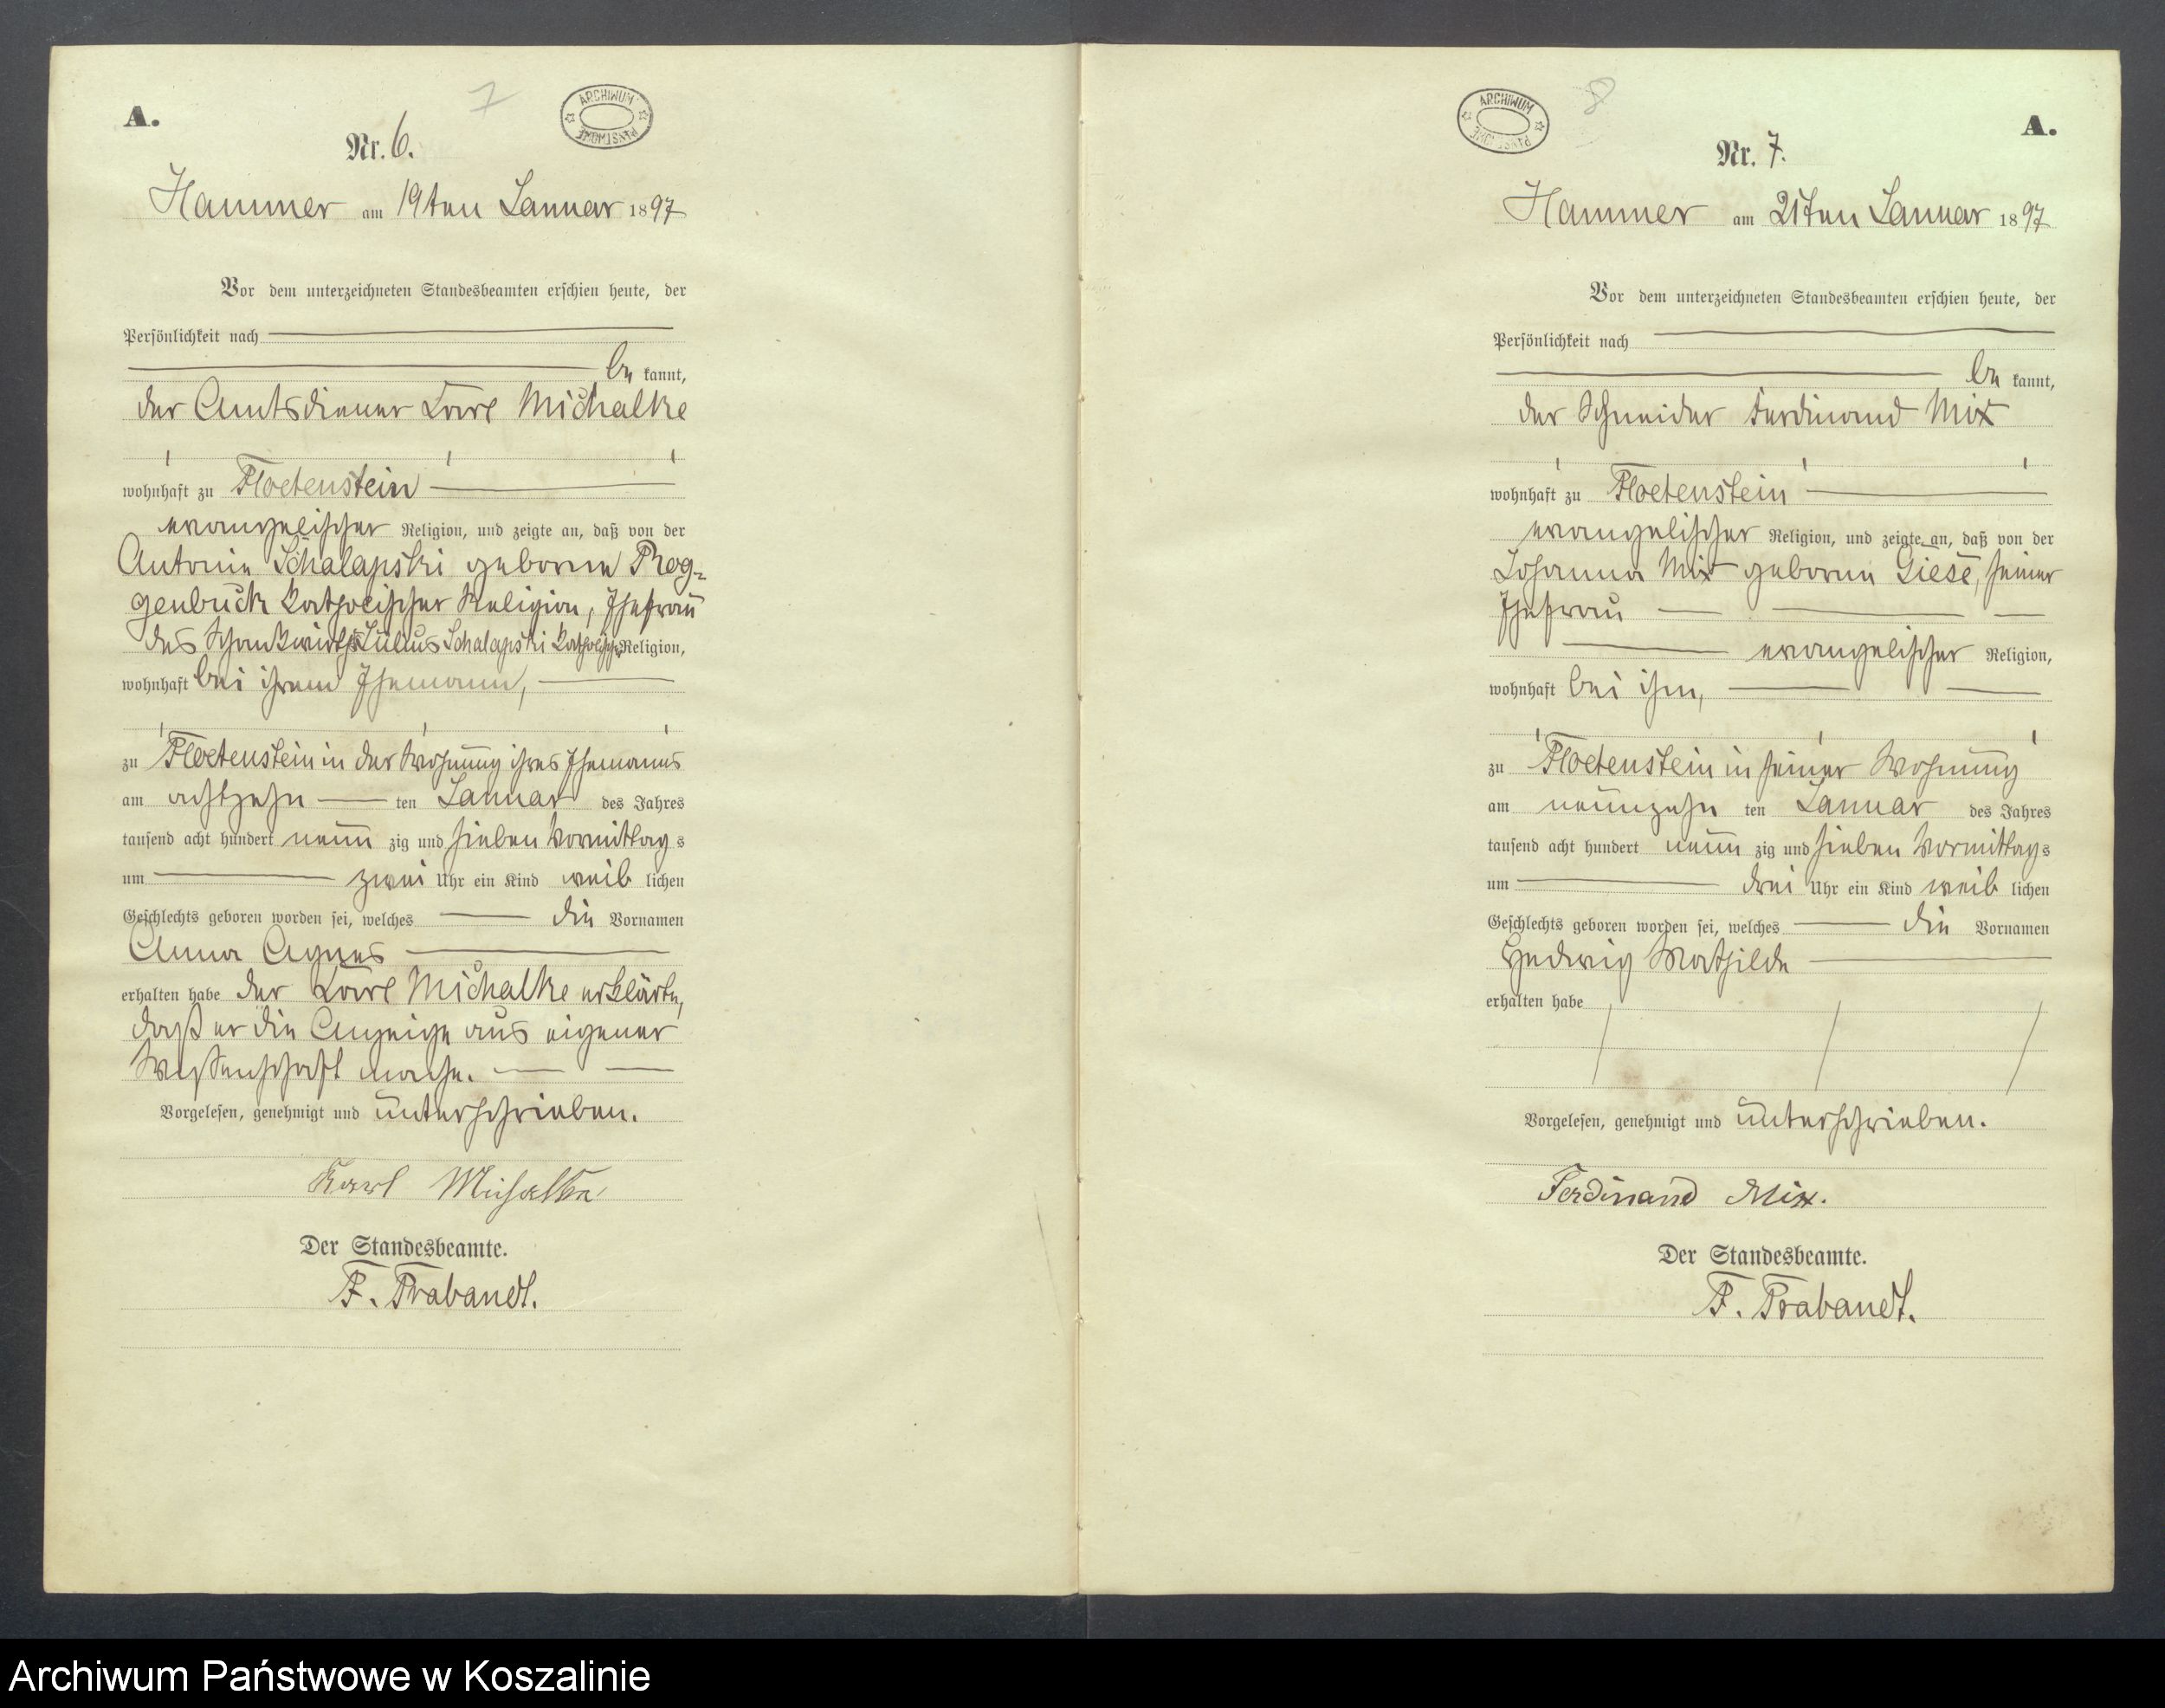 A.
7
ARCHIWUM PAŃSTWOWE
Nr. 6.
Hammer am 19ten Januar 1897
Vor dem unterzeichneten Standesbeamten erschien heute, der
Persönlichkeit nach
be kannt,
der Amtsdiener Karl Michalke
wohnhaft zu Floetenstein
evangelischer Religion, und zeigte an, daß von der
Antonie Schalapski geborne Prog-
genbuck katholischer Religion, Ehefrau
des Schankwirths Julius Schalapski katholischer Religion,
wohnhaft bei ihrem Ehemann,
zu Floetenstein in der Wohnung ihres Ehemanns
am achtzehn ten Januar des Jahres
tausend acht hundert neun zig und sieben Vormittag s
um zwei Uhr ein Kind weib lichen
Geschlechts geboren worden sei, welches die Vornamen
Anna Agnes
erhalten habe der Karl Michalke erklärte,
daß er die Anzeige aus eigener
Wissenschaft mache.
Vorgelesen, genehmigt und unterschrieben.
Karl Michalke
Der Standesbeamte.
F. Trabandt.
ARCHIWUM PAŃSTWOWE
8
A.
Nr. 7.
Hammer am 21ten Januar 1897
Vor dem unterzeichneten Standesbeamten erschien heute, der
Persönlichkeit nach
be kannt,
der Schneider Ferdinand Mix
wohnhaft zu Floetenstein
evangelischer Religion, und zeigte an, daß von der
Johanna Mix geborne Giese, seiner
Ehefrau
evangelischer Religion,
wohnhaft bei ihm,
zu Floetenstein in seiner Wohnung
am neunzehn ten Januar des Jahres
tausend acht hundert neun zig und sieben Vormittag s
um drei Uhr ein Kind weib lichen
Geschlechts geboren worden sei, welches die Vornamen
Hedwig Mathilde
erhalten habe
Vorgelesen, genehmigt und unterschrieben.
Ferdinand Mix.
Der Standesbeamte.
F. Trabandt.
Archiwum Państwowe w Koszalinie